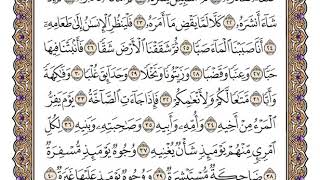 شَآءَ أَنشَرَهُۥ ٢٢ كَلَّا لَمَّا يَقۡضِ مَآ أَمَرَهُۥ ٢٣ فَلۡيَنظُرِ ٱلۡإِنسَٰنُ إِلَىٰ طَعَامِهِۦٓ
٢٤ أَنَّا صَبَبۡنَا ٱلۡمَآءَ صَبّٗا ٢٥ ثُمَّ شَقَقۡنَا ٱلۡأَرۡضَ شَقّٗا ٢٦ فَأَنۢبَتۡنَا فِيهَا
حَبّٗا ٢٧ وَعِنَبٗا وَقَضۡبٗا ٢٨ وَزَيۡتُونٗا وَنَخۡلٗا ٢٩ وَحَدَآئِقَ غُلۡبٗا ٣٠ وَفَٰكِهَةٗ
وَأَبّٗا ٣١ مَّتَٰعٗا لَّكُمۡ وَلِأَنۡعَٰمِكُمۡ ٣٢ فَإِذَا جَآءَتِ ٱلصَّآخَّةُ ٣٣ يَوۡمَ يَفِرُّ
ٱلۡمَرۡءُ مِنۡ أَخِيهِ ٣٤ وَأُمِّهِۦ وَأَبِيهِ ٣٥ وَصَٰحِبَتِهِۦ وَبَنِيهِ ٣٦ لِكُلِّ
ٱمۡرِيٕٖ مِّنۡهُمۡ يَوۡمَئِذٖ شَأۡنٞ يُغۡنِيهِ ٣٧ وُجُوهٞ يَوۡمَئِذٖ مُّسۡفِرَةٞ
٣٨ ضَاحِكَةٞ مُّسۡتَبۡشِرَةٞ ٣٩ وَوُجُوهٞ يَوۡمَئِذٍ عَلَيۡهَا غَبَرَةٞ ٤٠